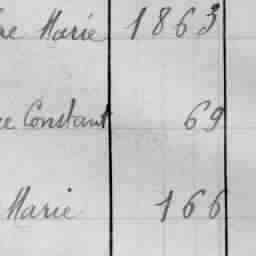 Marie 1863
Constant 69
Marie 166